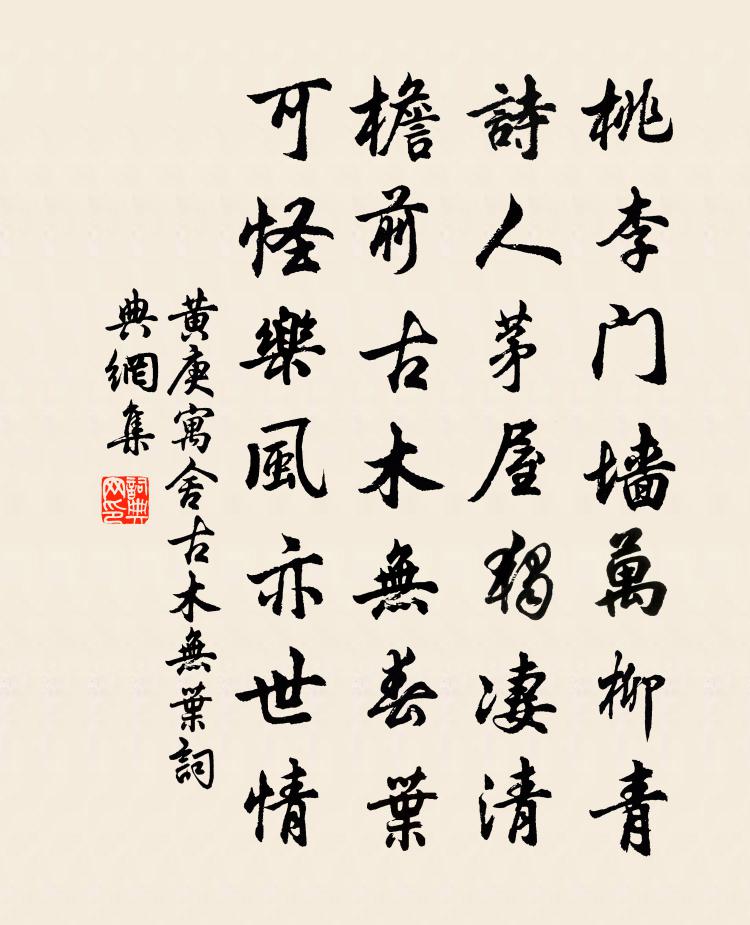 桃李門墻萬柳青
詩人茅屋獨凄清
檐前古木無春葉
可怪樂風亦世情
黃庚寓舍古木無葉詞
典網集
詞典
网印